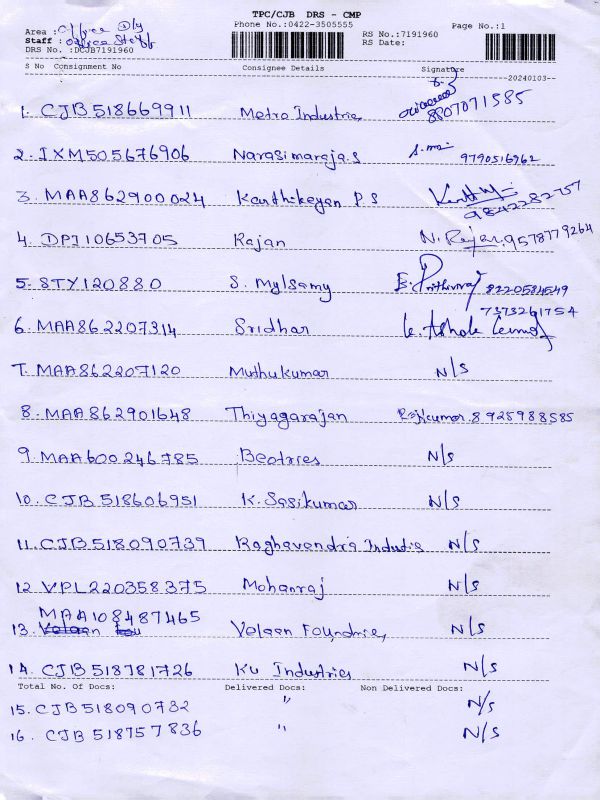 TPC/CJB DRS - CMP
Phone No.:0422-3505555
Page No.:1
Area : Office Dly
Staff : Office Staff
DRS No. :DCJB7191960
RS No.:7191960
RS Date:
S No Consignment No Consignee Details Signature
20240103
1. CJB518669911 Metro Industries 8807071585
2. IXM505676906 Narasimaraja.S 9790516962
3. MAA862900024 Karthikeyan P S 9842282757
4. DPI10653705 Rajan N. Rajan. 9578779264
5. STY120880 S. Mylsamy 8220584549
7373261754
6. MAA862207314 Sridhar K. Ashok Kumar
7. MAA862207120 Muthukumar N/S
8. MAA862901648 Thiyagarajan Rajkumar 8925988585
9. MAA600246785 Beatries N/S
10. CJB518606951 K. Sasikumar N/S
11. CJB518090739 Raghavendra Industries N/S
12 VPL220358375 Mohanraj N/S
MAA108487465
13. Velaan Foundries N/S
14. CJB518781726 KU Industries N/S
Total No. Of Docs: Delivered Docs: Non Delivered Docs:
15. CJB518090732 " N/S
16. CJB518757836 " N/S